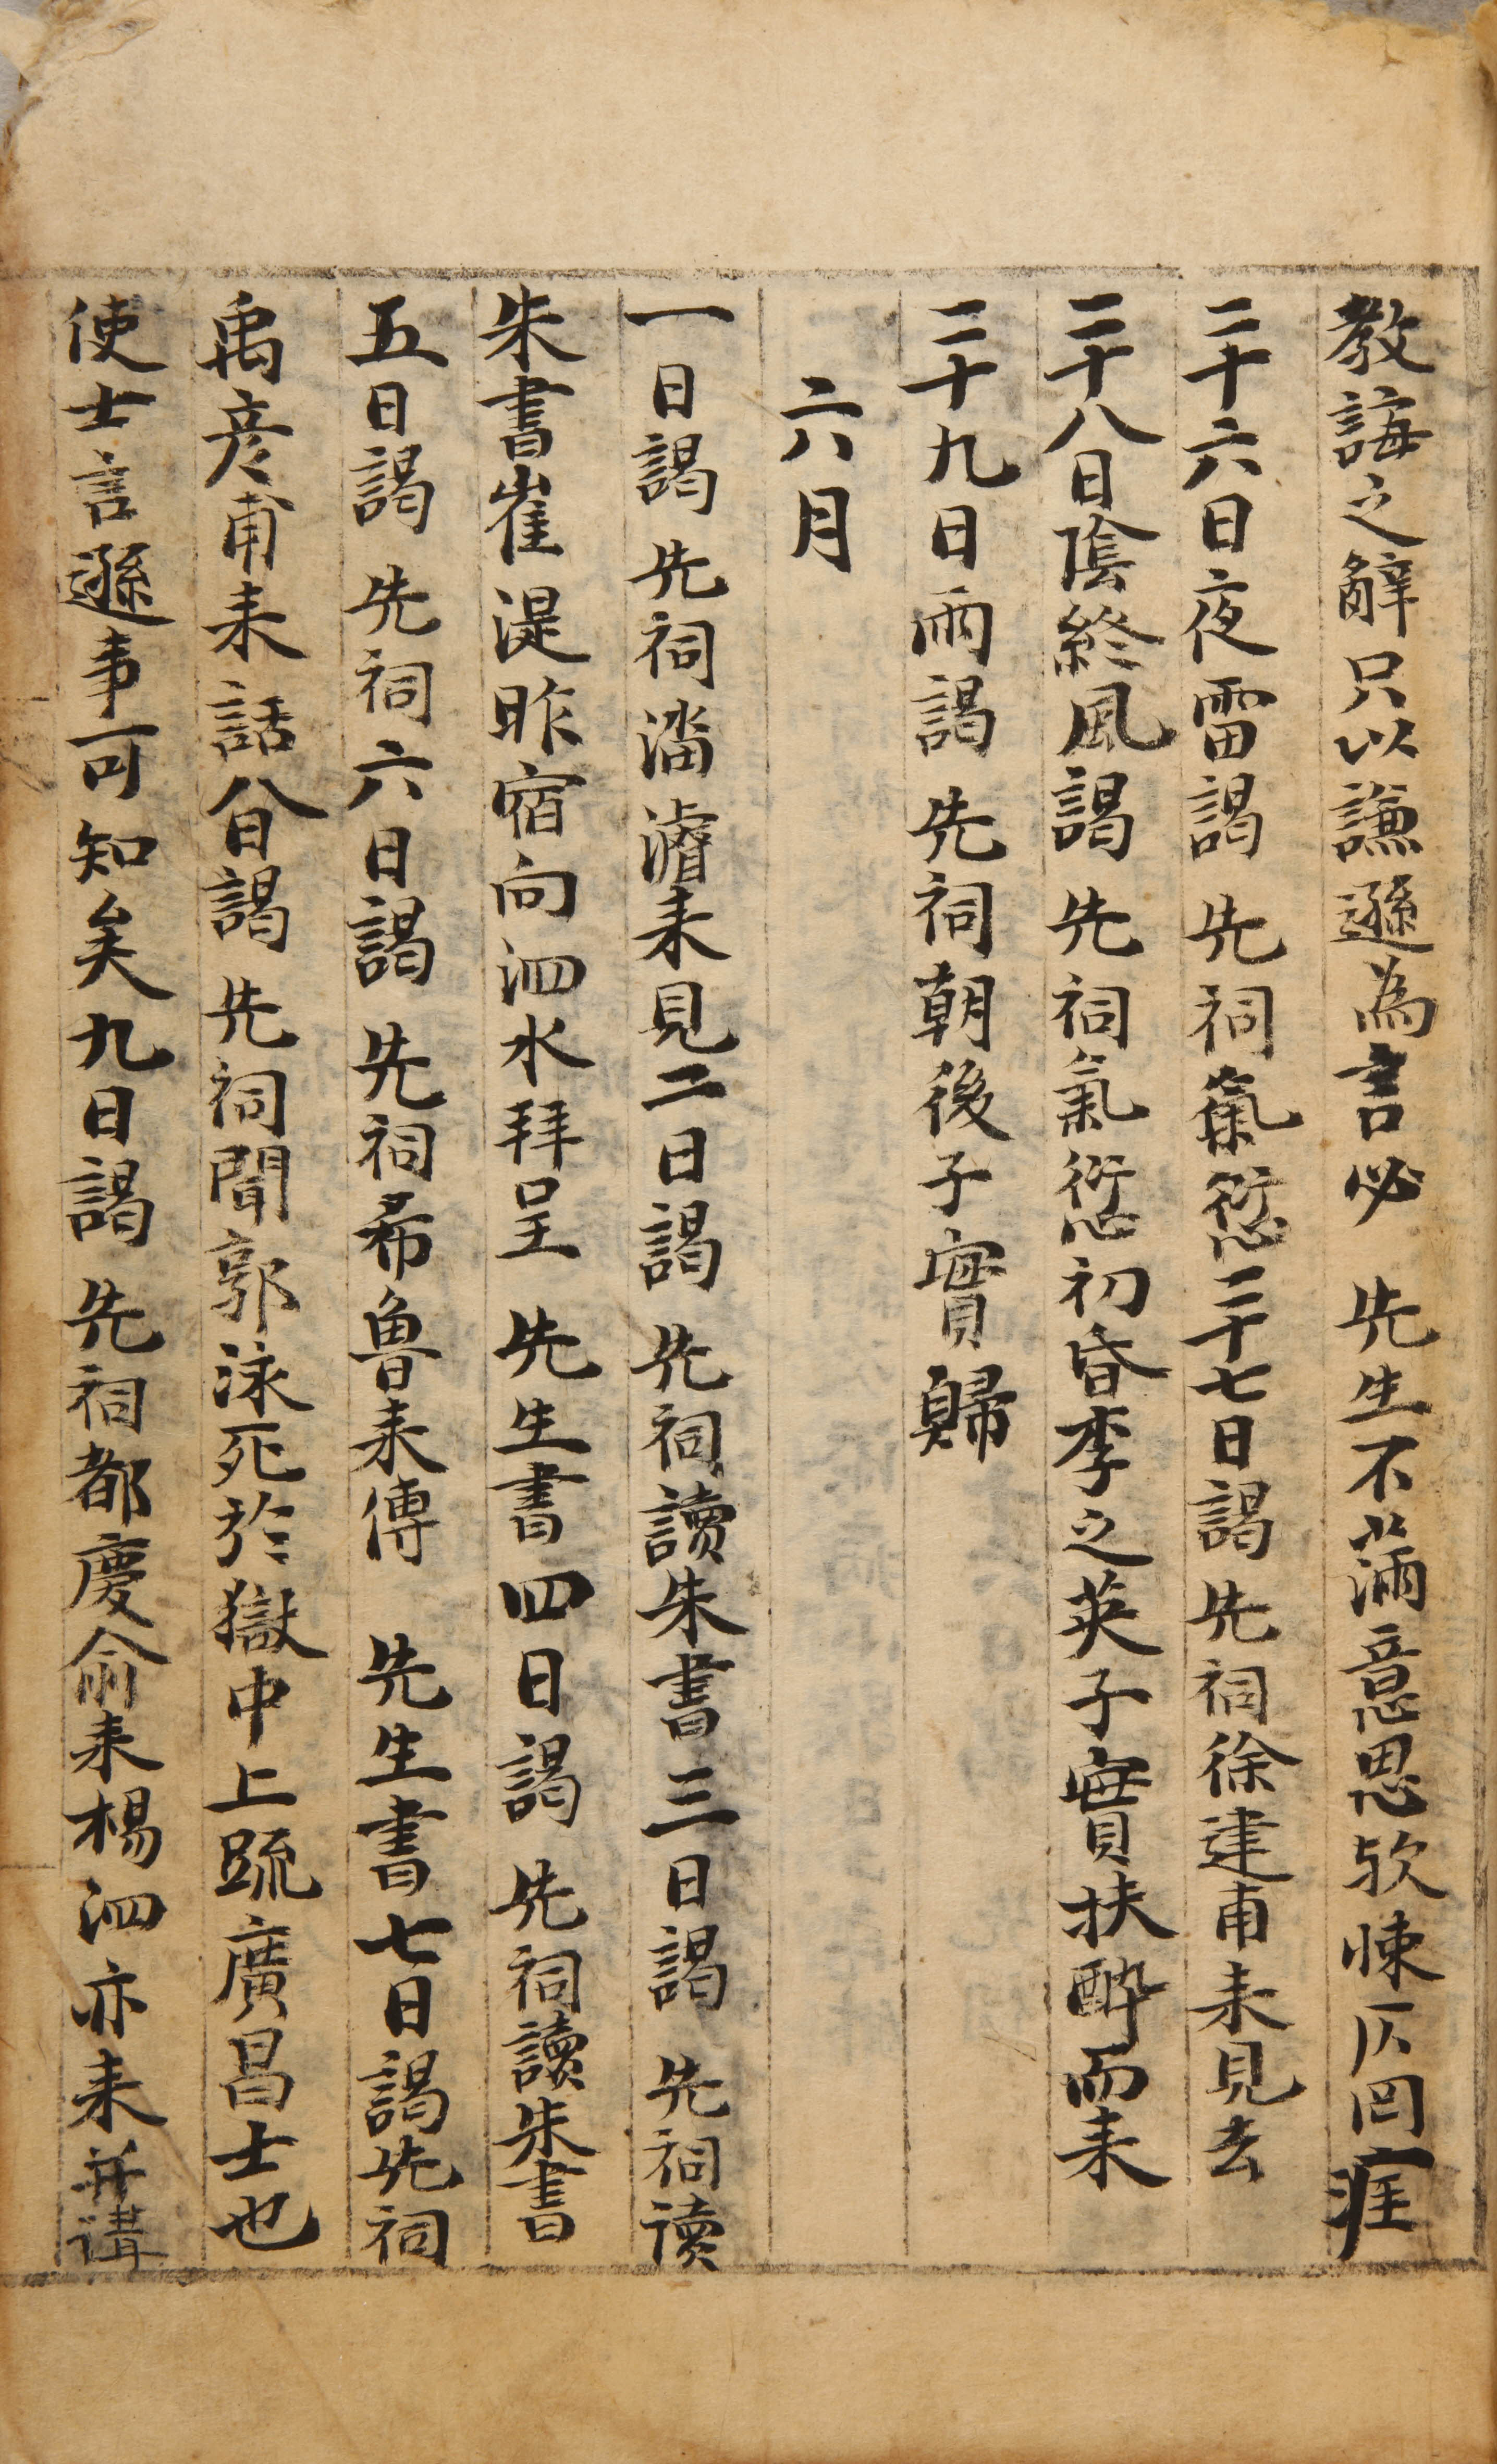 教誨之辭只以謙遜為言必 先生不滿意思欤悚仄罔涯
二十六日夜雷謁 先祠氣愆二十七日謁 先祠徐建甫来見去
二十八日陰終風謁 先祠氣愆初昏李之英子實扶醉而来
二十九日雨謁 先祠朝後子實歸
六月
一日謁 先祠濬来見二日謁 先祠讀朱書三日謁 先祠讀
朱書崔湜昨宿向泗水拜呈 先生書四日謁 先祠讀朱書
五日謁 先祠六日謁 先祠希魯来傳 先生書七日謁先祠
禹彦甫来話八日謁 先祠聞郭泳死於獄中上疏廣昌士也
使士言遜事可知矣九日謁 先祠都慶俞来楊泗亦来并講